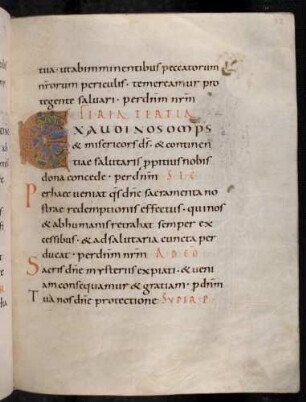 tua · utab imminentibus peccatorum
nrorum periculis · te mereamur pro
tegente saluari · per dnm nrm
FERIA TERTIA
EXAUDI NOS OMPS
& misericors ds · & continen
tiae salutaris ppitius nobis
dona concede · per dnm SEC
Per haec ueniat qs dne sacramenta no
strae redemptionis effectus · qui nos
& ab humanis retrahat semper ex
cessibus · & ad salutaria cuncta per
ducat · per dnm nrm AD CO
Sacris dne mysteriis expiati · & ueni
am consequamur & gratiam · p dnm
Tua nos dne protectione SUPER P